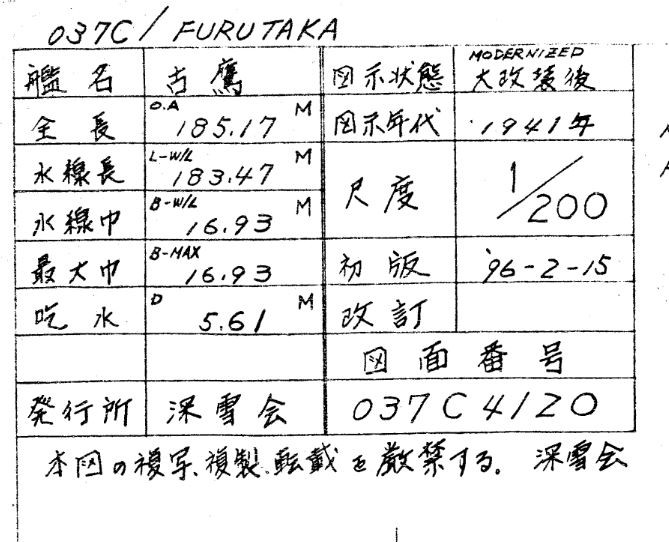 037C / FURUTAKA
艦名 古鷹 図示状態 MODERNIZED 大改装後
全長 O.A 185.17 M 図示年代 1941年
水線長 L-W/L 183.47 M 尺度 1/200
水線巾 B-W/L 16.93 M
最大巾 B-MAX 16.93 初版 '96-2-15
吃水 D 5.61 M 改訂
図面番号
発行所 深雪会 037C4120
本図の複写、複製、転載を厳禁する。 深雪会